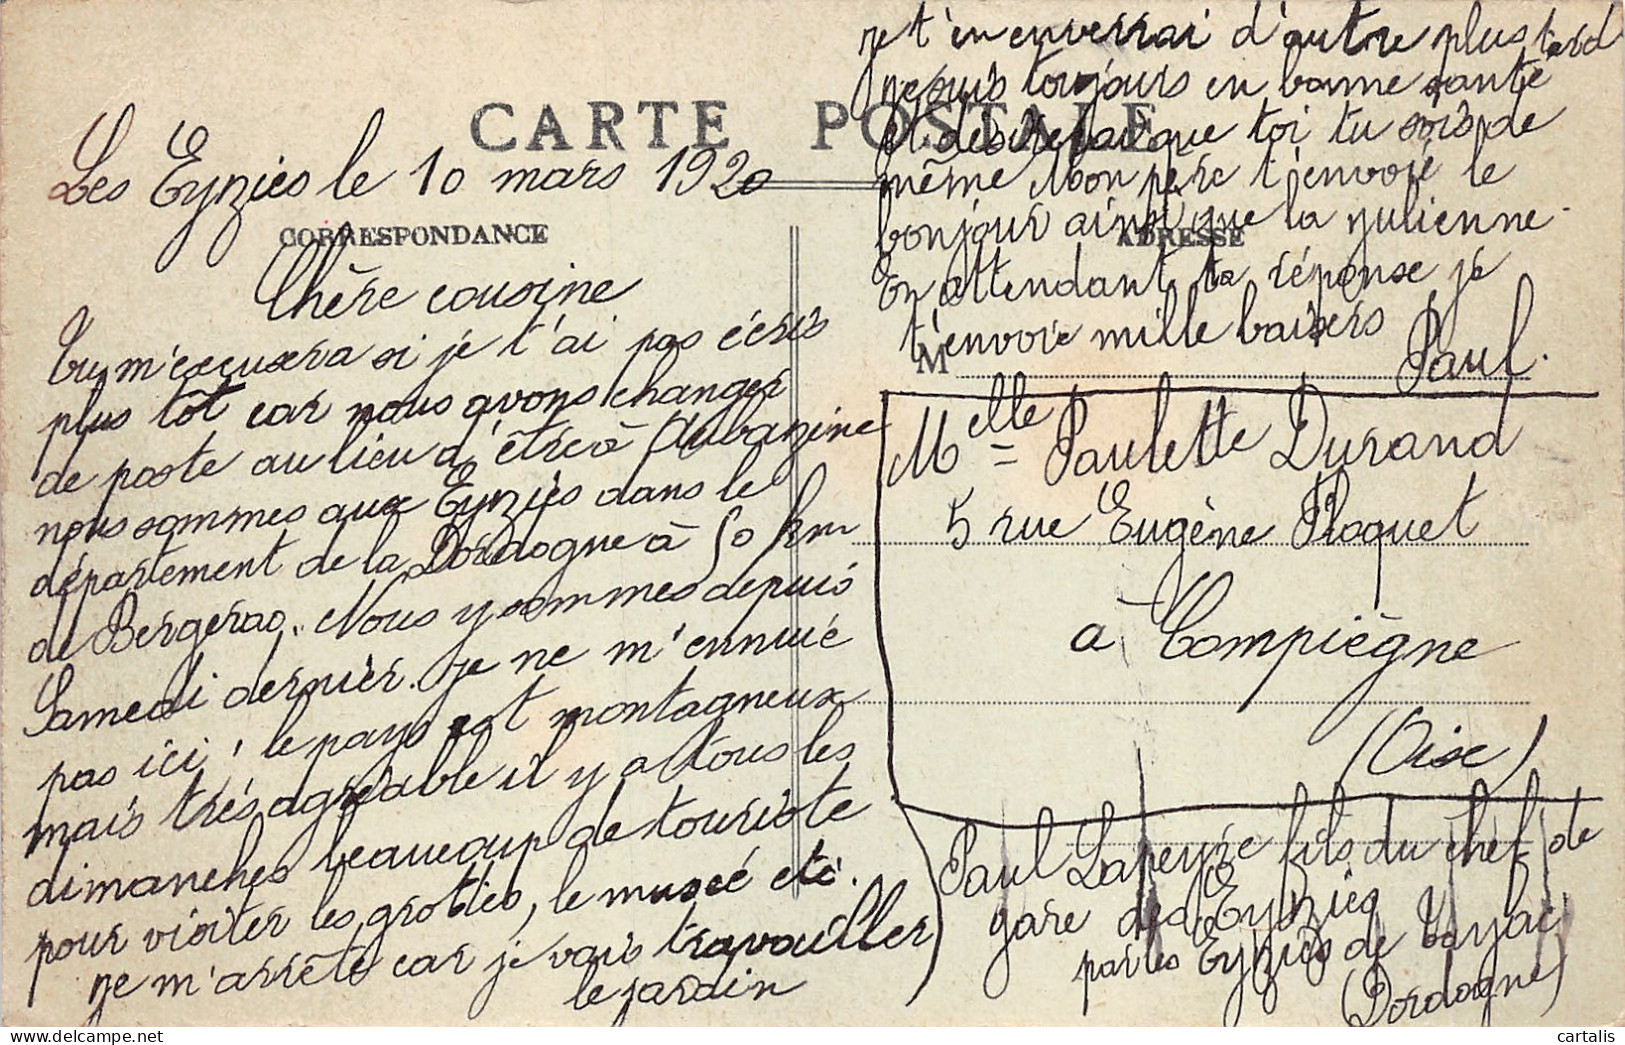 CARTE POSTALE
Les Eyzies le 10 mars 1920
CORRESPONDANCE
Chère cousine
Tu m'excusera si je t'ai pas écris
plus tôt car nous avons changer
de poste au lieu d'être à Aubazine
nous sommes aux Eyzies dans le
département de la Dordogne à 50 km
de Bergerac. Nous y sommes depuis
Samedi dernièr. je ne m'ennuié
pas ici, le pays est montagneux
mais très agréable il y a tous les
dimanches beaucoup de touriste
pour visiter les grottes, le museé etc.
je m'arrête car je vais travailler
le jardin
je t'en enverrai d'autre plus tard
je suis toujours en bonne santé
et désire que toi tu sois de
même Mon père t'envoie le
bonjour ainsi que la julienne.
ADRESSE
En attendant ta réponse je
t'envoie mille baisers
M
Paul.
Melle Paulette Durand
5 rue Eugène Floquet
à Compiègne
(Oise)
Paul Lapeyre fils du chef de
gare des Eyzies
par les Eyzies de Tayac
(Dordogne)
cartalis